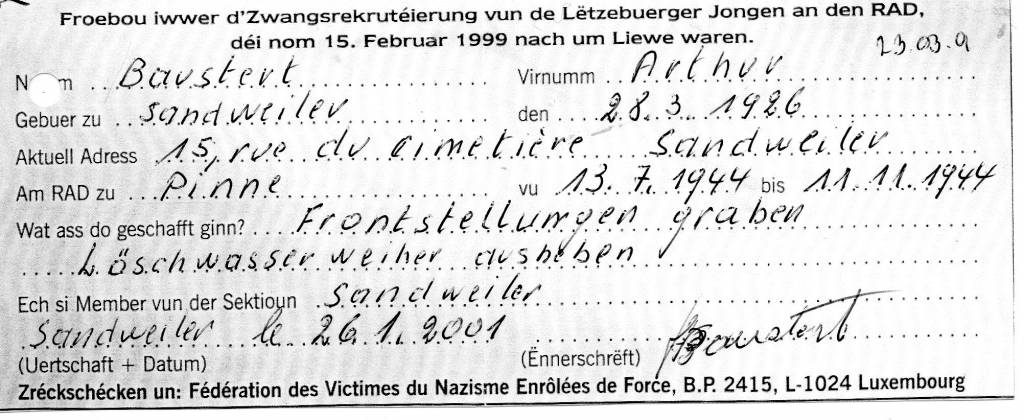 Froebou iwwer d'Zwangsrekrutéierung vun de Lëtzebuerger Jongen an den RAD,
déi nom 15. Februar 1999 nach um Liewe waren.
23.03.9
N m Baustert Virnumm Arthur
Gebuer zu Sandweiler den 28.3.1926
Aktuell Adress 15, rue du cimetière Sandweiler
Am RAD zu Pinne vu 13.7.1944 bis 11.11.1944
Wat ass do geschafft ginn? Frontstellungen graben
Löschwasserweiher ausheben
Ech si Member vun der Sektioun Sandweiler
Sandweiler le 26.1.2001 Baustert
(Uertschaft + Datum) (Ënnerschrëft)
Zréckschécken un: Fédération des Victimes du Nazisme Enrôlées de Force, B.P. 2415, L-1024 Luxembourg